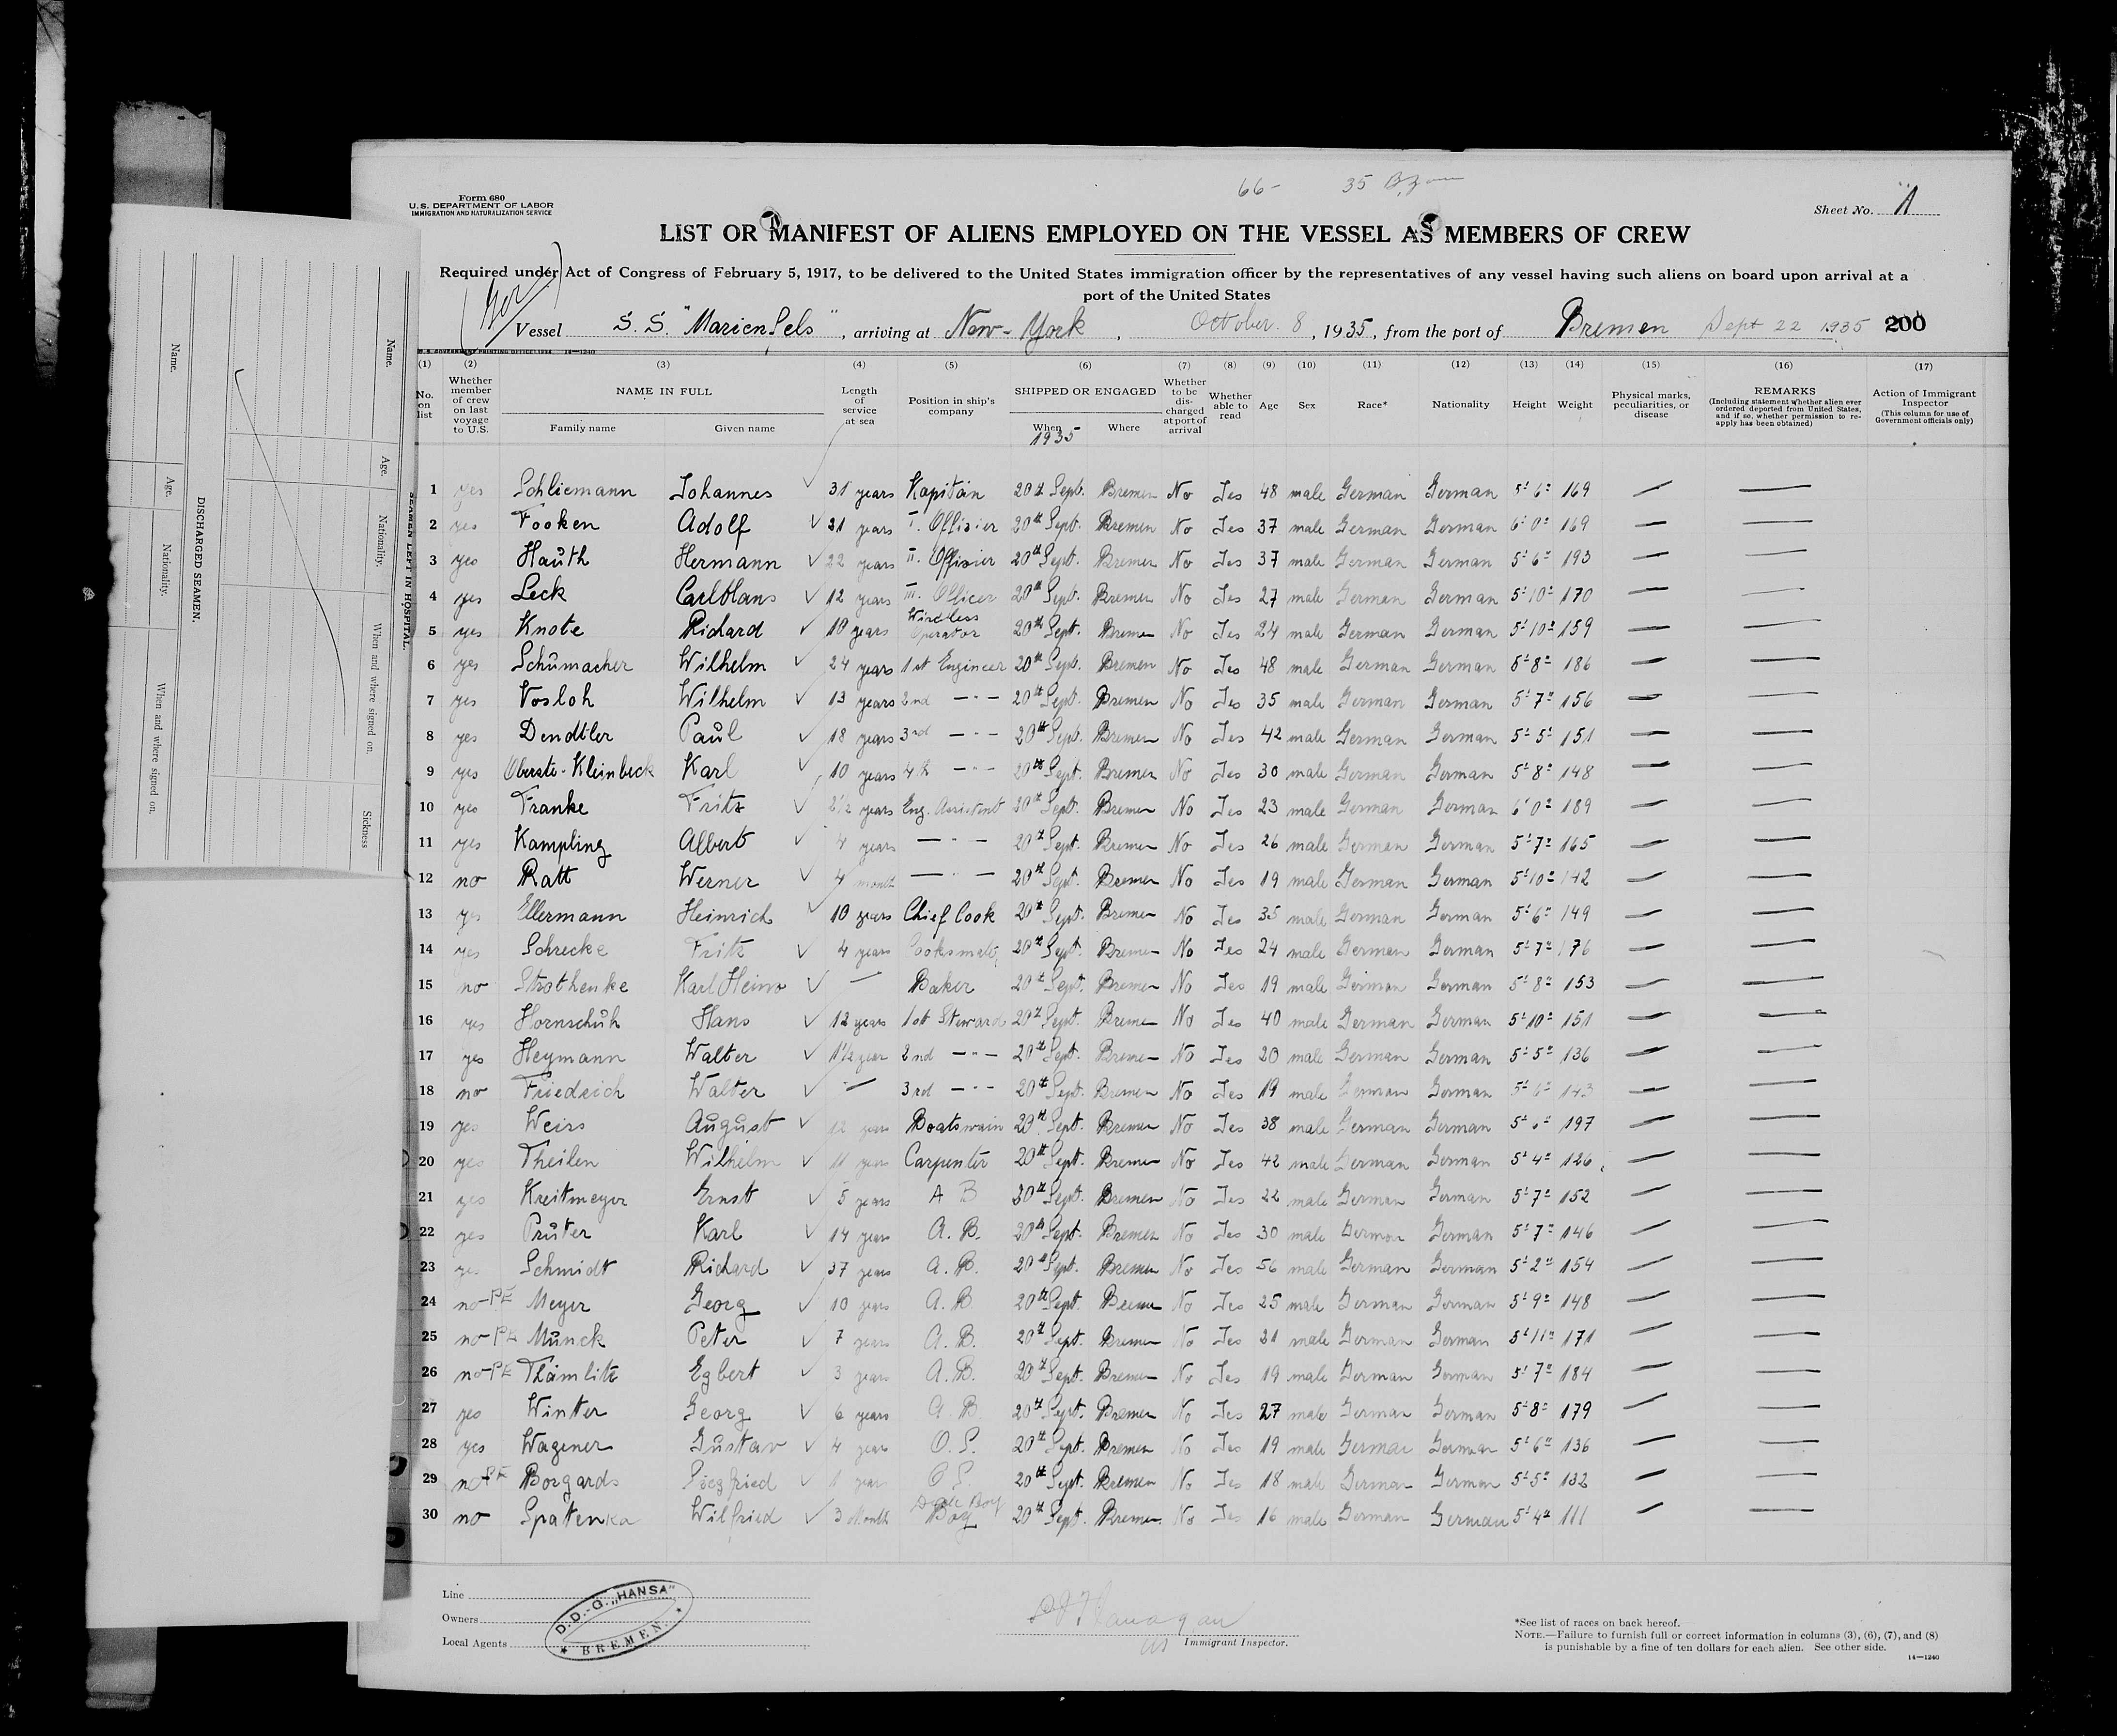 66- 35
Form 680
U. S. DEPARTMENT OF LABOR
IMMIGRATION AND NATURALIZATION SERVICE
Sheet No. 1
LIST OR MANIFEST OF ALIENS EMPLOYED ON THE VESSEL AS MEMBERS OF CREW
Required under Act of Congress of February 5, 1917, to be delivered to the United States immigration officer by the representatives of any vessel having such aliens on board upon arrival at a
port of the United States
Vessel S. S. "Marienfels", arriving at New-York, October 8, 1935, from the port of Bremen Sept 22 1935 200
U. S. GOVERNMENT PRINTING OFFICE: 1934 14—1240
(1) (2) (3) (4) (5) (6) (7) (8) (9) (10) (11) (12) (13) (14) (15) (16) (17)
No. on list
Whether member of crew on last voyage to U.S.
NAME IN FULL
Family name
Given name
Length of service at sea
Position in ship's company
SHIPPED OR ENGAGED
When 1935
Where
Whether to be discharged at port of arrival
Whether able to read
Age
Sex
Race*
Nationality
Height
Weight
Physical marks, peculiarities, or disease
REMARKS
(Including statement whether alien ever ordered deported from United States, and if so, whether permission to re-apply has been obtained)
Action of Immigrant Inspector
(This column for use of Government officials only)
1 yes Schliemann Johannes 31 years Kapitän 20th Sept. Bremen No Jes 48 male German German 5' 6" 169 — —
2 yes Fooken Adolf 21 years I. Offizier 20th Sept. Bremen No Jes 37 male German German 6' 0" 169 — —
3 yes Hauth Hermann 22 years II. Offizier 20th Sept. Bremen No Jes 37 male German German 5' 6" 193 — —
4 yes Leck Carl Hans 12 years III. Officer 20th Sept. Bremen No Jes 27 male German German 5' 10" 170 — —
5 yes Knote Richard 10 years Wireless Operator 20th Sept. Bremen No Jes 24 male German German 5' 10" 159 — —
6 yes Schumacher Wilhelm 24 years 1st Engineer 20th Sept. Bremen No Jes 48 male German German 5' 8" 186 — —
7 yes Vosloh Wilhelm 13 years 2nd — " — 20th Sept. Bremen No Jes 35 male German German 5' 7" 156 — —
8 yes Dendtler Paul 18 years 3rd — " — 20th Sept. Bremen No Jes 42 male German German 5' 5" 151 — —
9 yes Oberste-Kleinbeck Karl 10 years 4th — " — 20th Sept. Bremen No Jes 30 male German German 5' 8" 148 — —
10 yes Franke Fritz 2½ years Eng. Assistent 20th Sept. Bremen No Jes 23 male German German 6' 0" 189 — —
11 yes Kampling Albert 4 years — " — 20th Sept. Bremen No Jes 26 male German German 5' 7" 165 — —
12 no Ratt Werner 4 month — " — 20th Sept. Bremen No Jes 19 male German German 5' 10" 142 — —
13 yes Ellermann Heinrich 10 years Chief Cook 20th Sept. Bremen No Jes 35 male German German 5' 6" 149 — —
14 yes Schrecke Fritz 4 years Cooksmate 20th Sept. Bremen No Jes 24 male German German 5' 7" 176 — —
15 no Strothenke Karl Heinz — Baker 20th Sept. Bremen No Jes 19 male German German 5' 8" 153 — —
16 yes Hornschuh Hans 12 years 1st Steward 20th Sept. Bremen No Jes 40 male German German 5' 10" 151 — —
17 yes Heymann Walter 1½ year 2nd — " — 20th Sept. Bremen No Jes 20 male German German 5' 5" 136 — —
18 no Friedrich Walter — 3rd — " — 20th Sept. Bremen No Jes 19 male German German 5' 6" 143 — —
19 yes Weiss August 12 years Boatswain 20th Sept. Bremen No Jes 38 male German German 5' 6" 197 — —
20 yes Theilen Wilhelm 11 years Carpenter 20th Sept. Bremen No Jes 42 male German German 5' 4" 126 — —
21 yes Kreitmeyer Ernst 5 years A B 20th Sept. Bremen No Jes 22 male German German 5' 7" 152 — —
22 yes Prüter Karl 14 years A. B. 20th Sept. Bremen No Jes 30 male German German 5' 7" 146 — —
23 yes Schmidt Richard 37 years A. B. 20th Sept. Bremen No Jes 56 male German German 5' 2" 154 — —
24 no-PE Meyer Georg 10 years A. B. 20th Sept. Bremen No Jes 25 male German German 5' 9" 148 — —
25 no-PE Munck Peter 7 years A. B. 20th Sept. Bremen No Jes 21 male German German 5' 11" 171 — —
26 no-PE Thämlitz Egbert 3 years A. B. 20th Sept. Bremen No Jes 19 male German German 5' 7" 184 — —
27 yes Winter Georg 6 years A. B. 20th Sept. Bremen No Jes 27 male German German 5' 8" 179 — —
28 yes Wagener Gustav 4 year O. S. 20th Sept. Bremen No Jes 19 male German German 5' 6" 136 — —
29 no-PE Borgards Siegfried 1 year O. S. 20th Sept. Bremen No Jes 18 male German German 5' 5" 132 — —
30 no Spatenka Wilfried 3 Month Deck Boy Boy 20th Sept. Bremen No Jes 16 male German German 5' 4" 111 — —
Line
Owners
Local Agents
D. D.-G. „HANSA" * BREMEN. *
Flanagan
Immigrant Inspector.
*See list of races on back hereof.
NOTE.—Failure to furnish full or correct information in columns (3), (6), (7), and (8)
is punishable by a fine of ten dollars for each alien. See other side.
14—1240
SEAMEN LEFT IN HOSPITAL.
Name. Age. Nationality. When and where signed on. Sickness
DISCHARGED SEAMEN.
Name. Age. Nationality. When and where signed on.